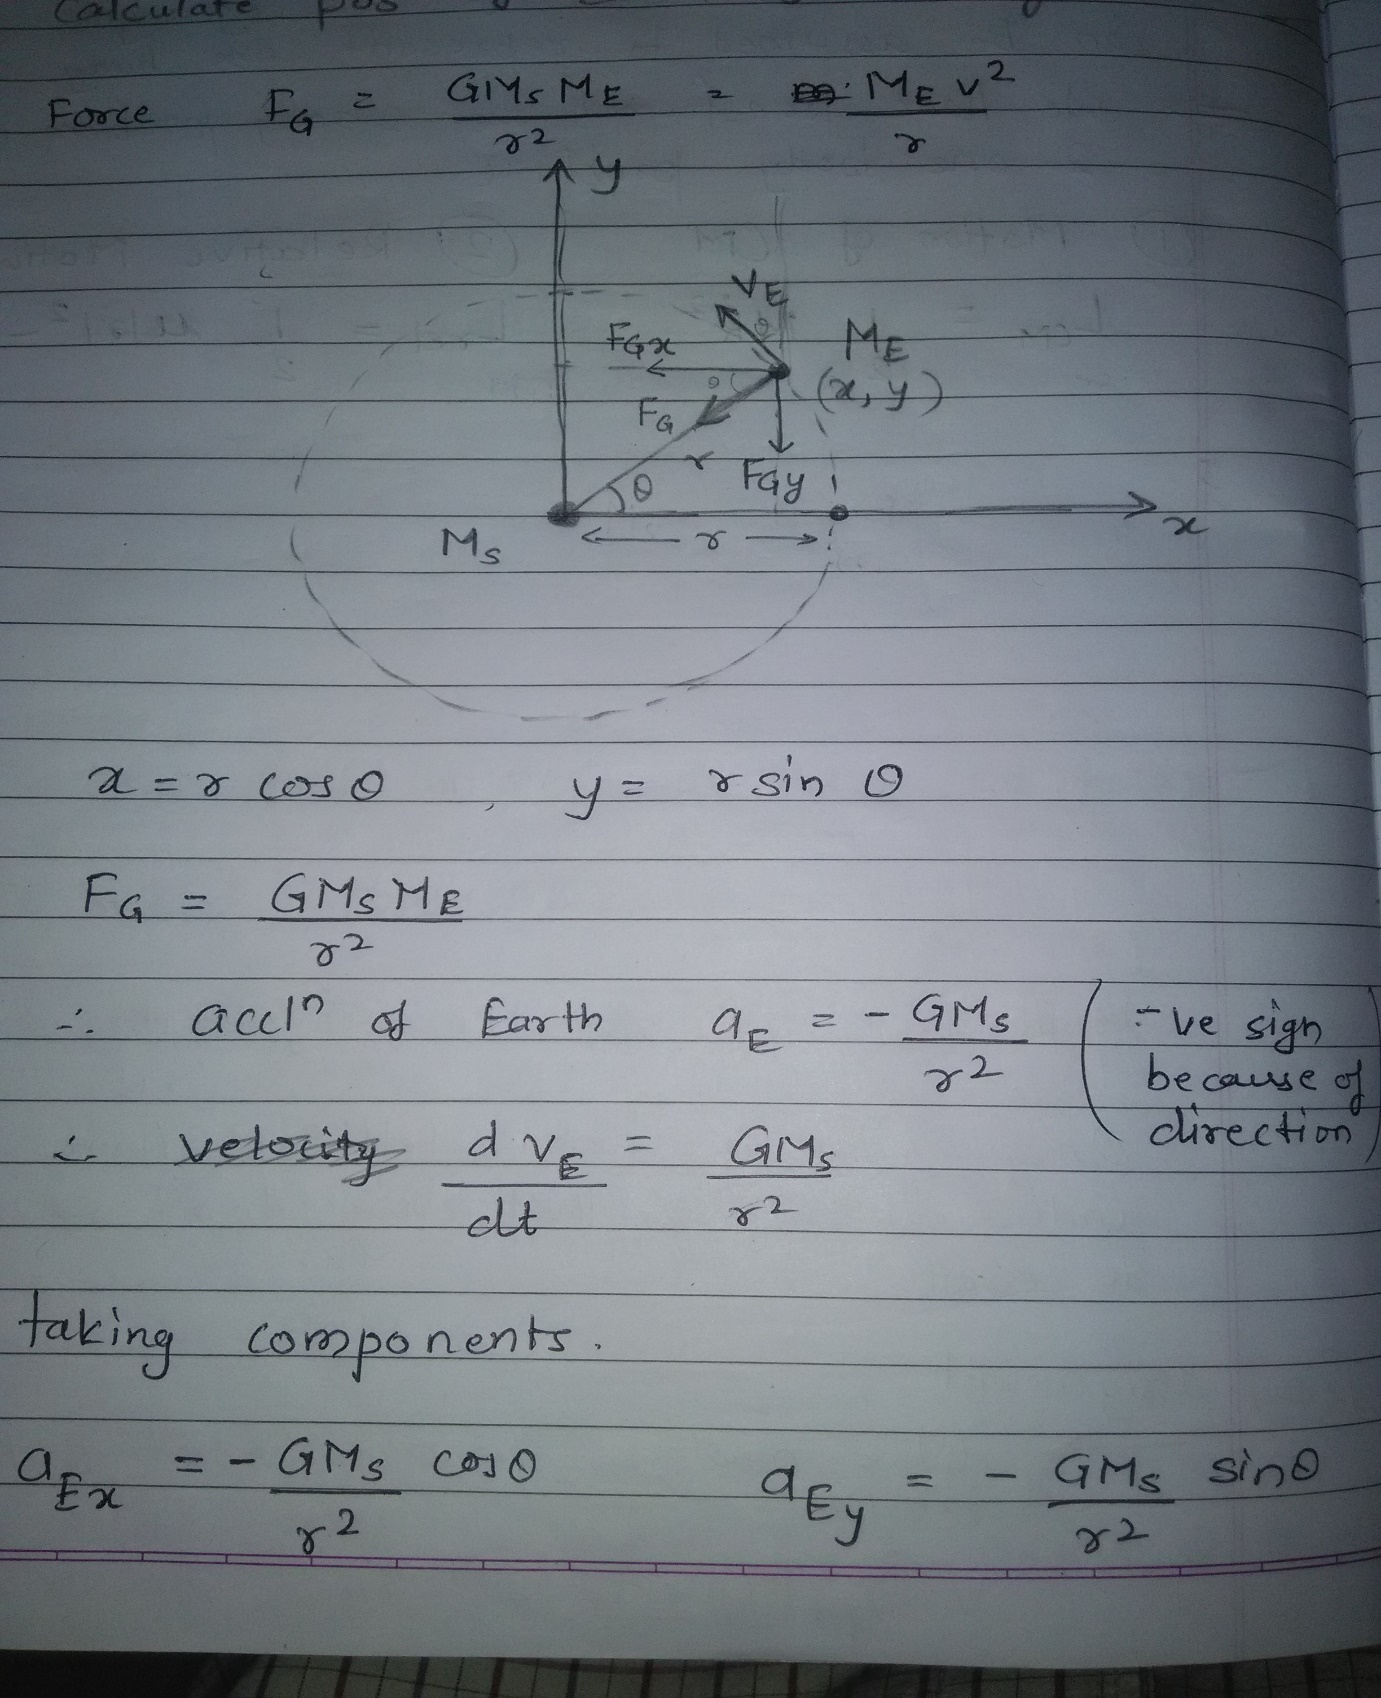 Calculate pos
Force F_G = GM_S M_E / r² = M_E v² / r
y
V_E
F_Gx
θ
M_E
(x, y)
θ
F_G
r
F_Gy
θ
M_S
r
x
x = r cos θ , y = r sin θ
F_G = GM_S M_E / r²
∴ accln of Earth a_E = - GM_S / r² ( -ve sign
because of
direction )
∴ d v_E / dt = GM_S / r²
taking components.
a_Ex = - GM_S / r² cos θ a_Ey = - GM_S / r² sin θ